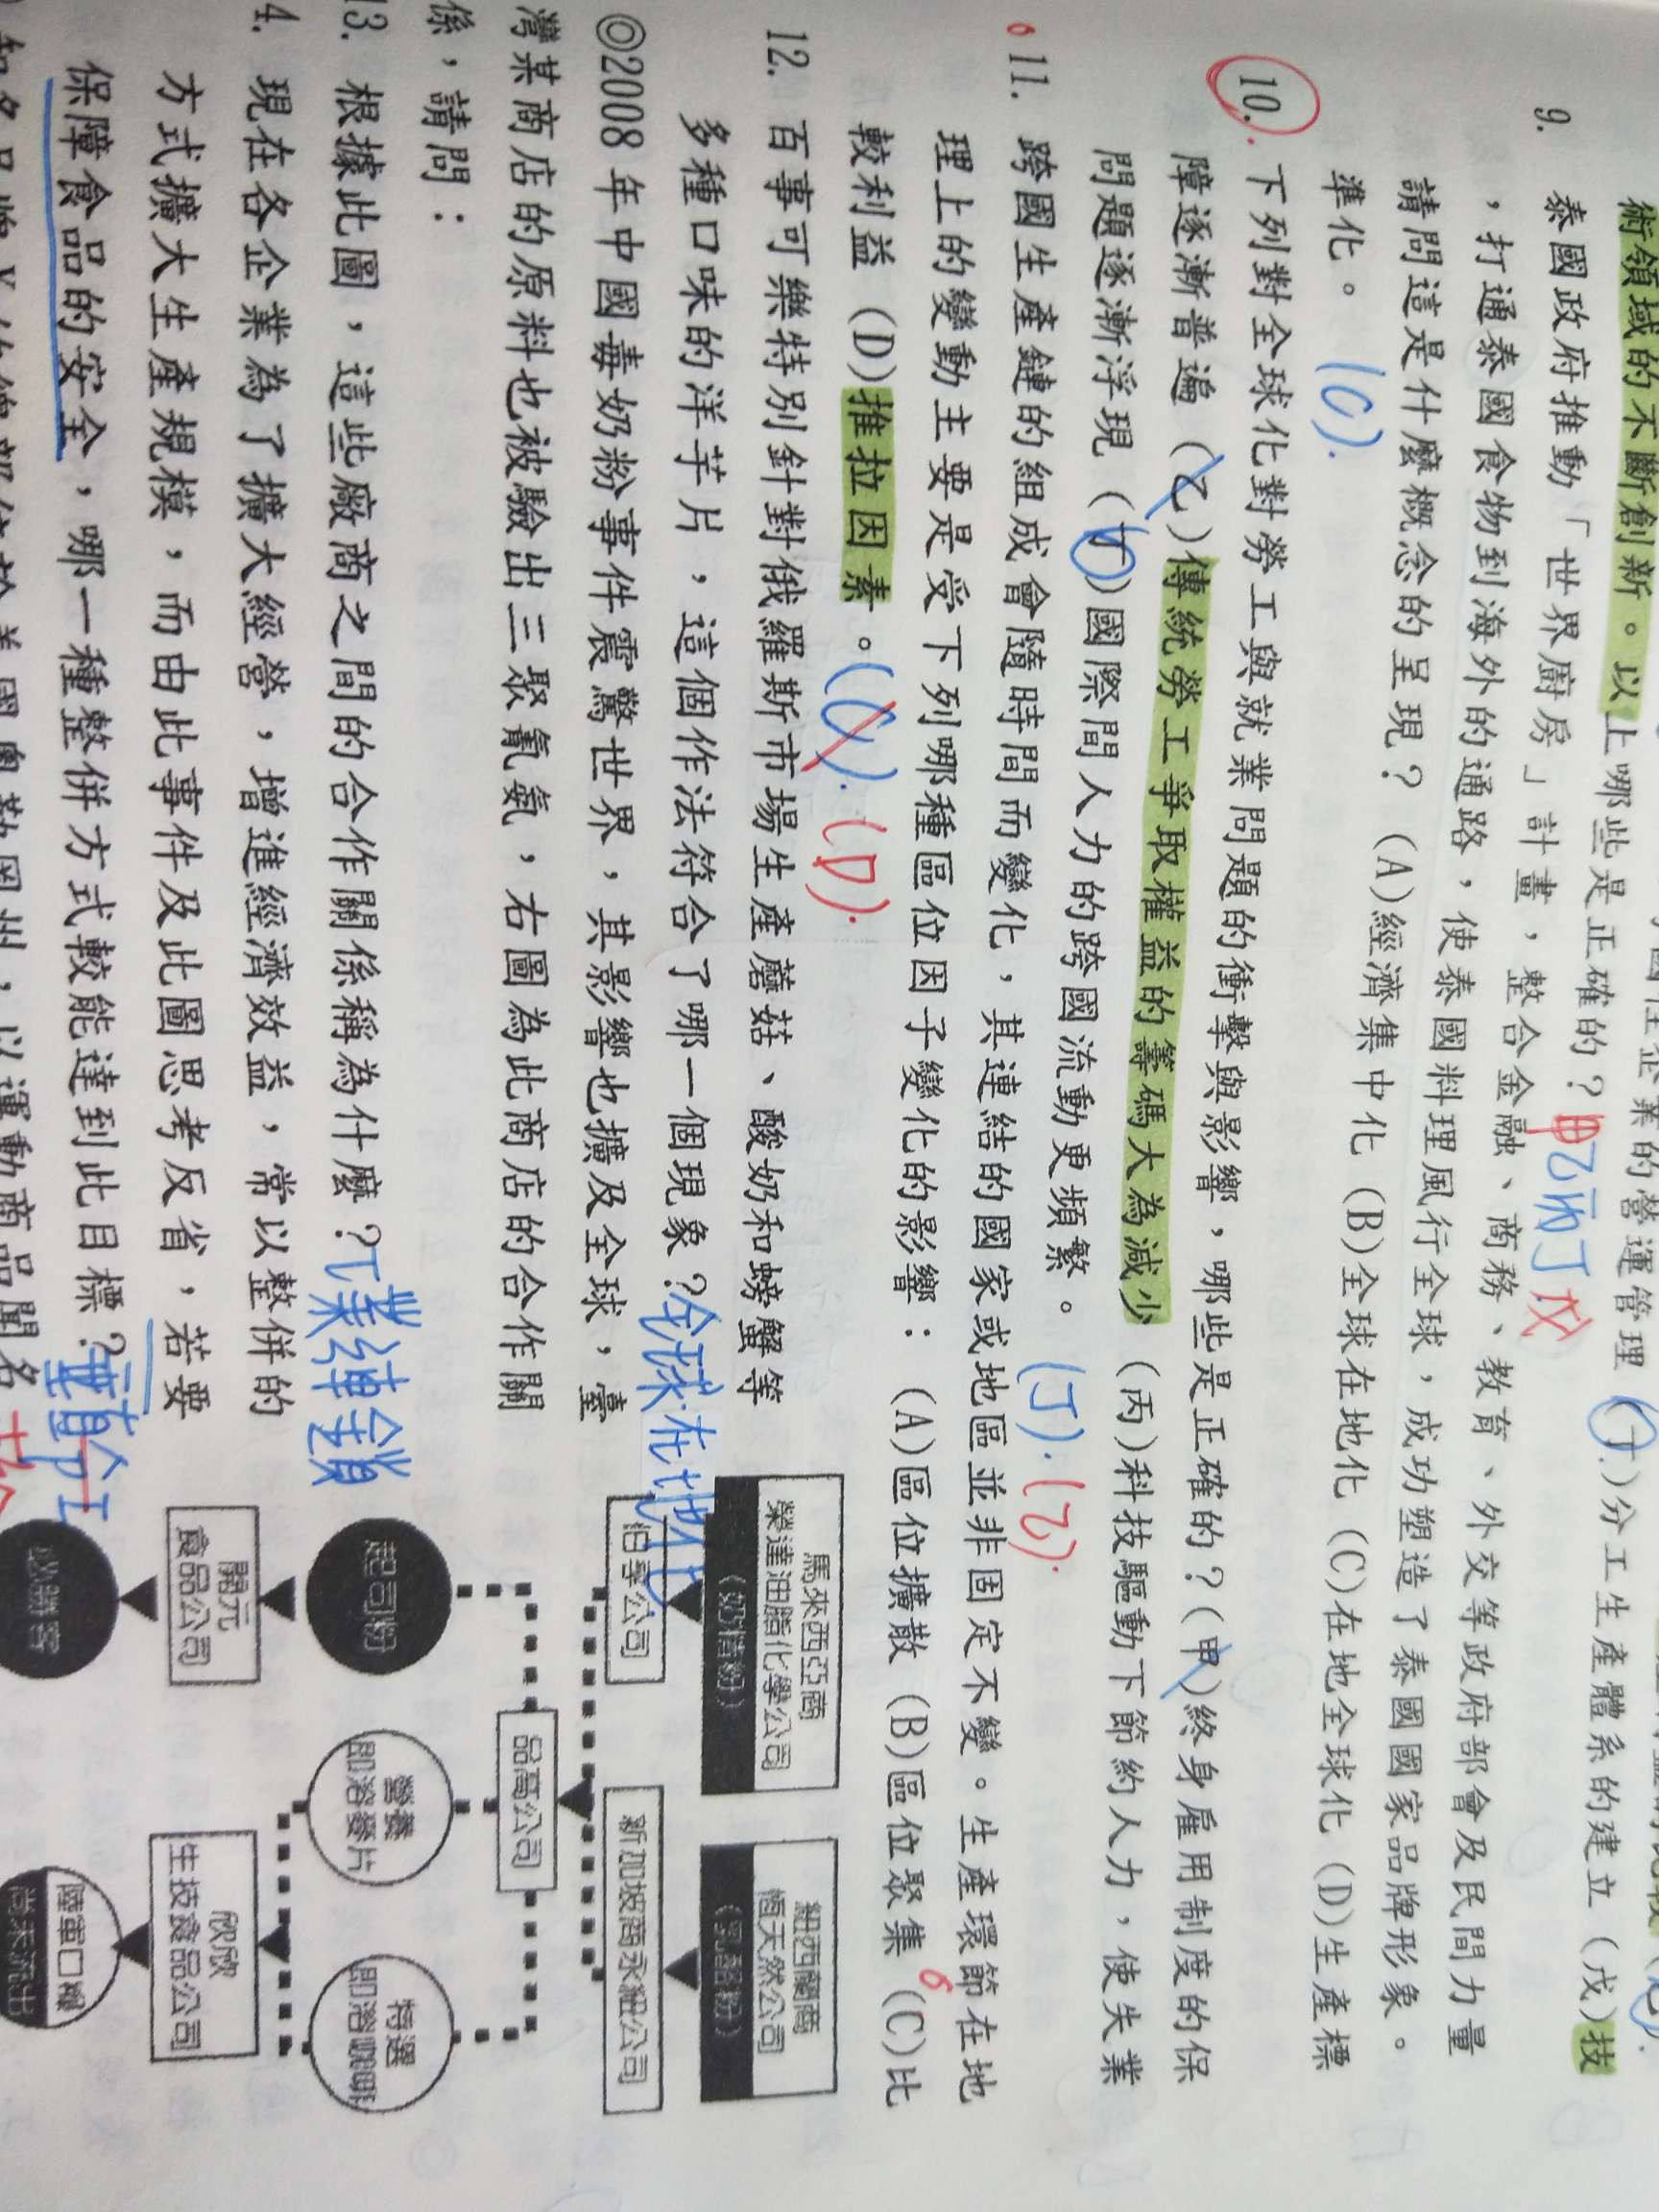 術領域的不斷創新。以上哪些是正確的？甲乙丙丁戊
9. 泰國政府推動「世界廚房」計畫，整合金融、商務、教育、外交等政府部會及民間力量
，打通泰國食物到海外的通路，使泰國料理風行全球，成功塑造了泰國國家品牌形象。
請問這是什麼概念的呈現？(A)經濟集中化 (B)全球在地化 (C)在地全球化 (D)生產標
準化。(C).
10. 下列對全球化對勞工與就業問題的衝擊與影響，哪些是正確的？(甲)終身雇用制度的保
障逐漸普遍 (乙)傳統勞工爭取權益的籌碼大為減少 (丙)科技驅動下節約人力，使失業
問題逐漸浮現 (丁)國際間人力的跨國流動更頻繁。(丁).(乙).
11. 跨國生產鏈的組成會隨時間而變化，其連結的國家或地區並非固定不變。生產環節在地
理上的變動主要是受下列哪種區位因子變化的影響：(A)區位擴散 (B)區位聚集 (C)比
較利益 (D)推拉因素。(C).(D).
12. 百事可樂特別針對俄羅斯市場生產蘑菇、酸奶和螃蟹等
多種口味的洋芋片，這個作法符合了哪一個現象？全球在地化
◎2008年中國毒奶粉事件震驚世界，其影響也擴及全球，臺
灣某商店的原料也被驗出三聚氰氨，右圖為此商店的合作關
係，請問：
13. 根據此圖，這些廠商之間的合作關係稱為什麼？工業連鎖
4. 現在各企業為了擴大經營，增進經濟效益，常以整併的
方式擴大生產規模，而由此事件及此圖思考反省，若要
保障食品的安全，哪一種整併方式較能達到此目標？垂直分工
馬來西亞商
榮達油脂化學公司
(奶精粉)
紐西蘭商
恆天然公司
(乳酪粉)
怡亨公司
新加坡商永紐公司
品高公司
起司粉
營養
即溶麥片
特選
即溶咖啡
開元
食品公司
欣欣
生技食品公司
必勝客
陸軍口糧
尚未流出